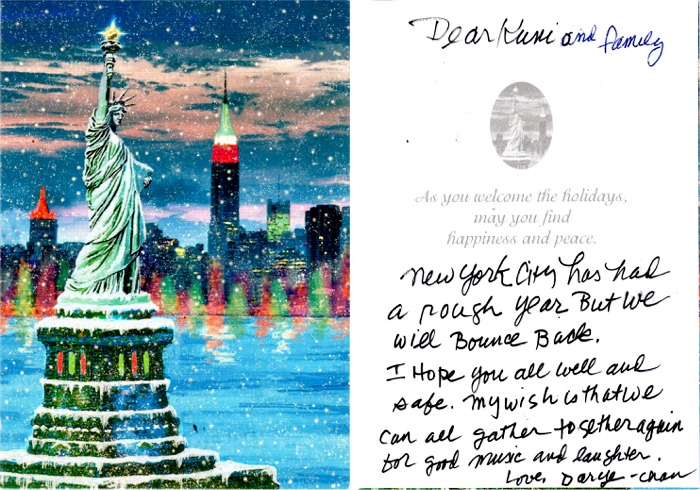 Dear Kuni and family
As you welcome the holidays,
may you find
happiness and peace.
New York City has had
a rough year But we
will Bounce Back.
I Hope you all well and
safe. my wish is that we
can all gather together again
for good music and laughter.
Love, Darye-chan